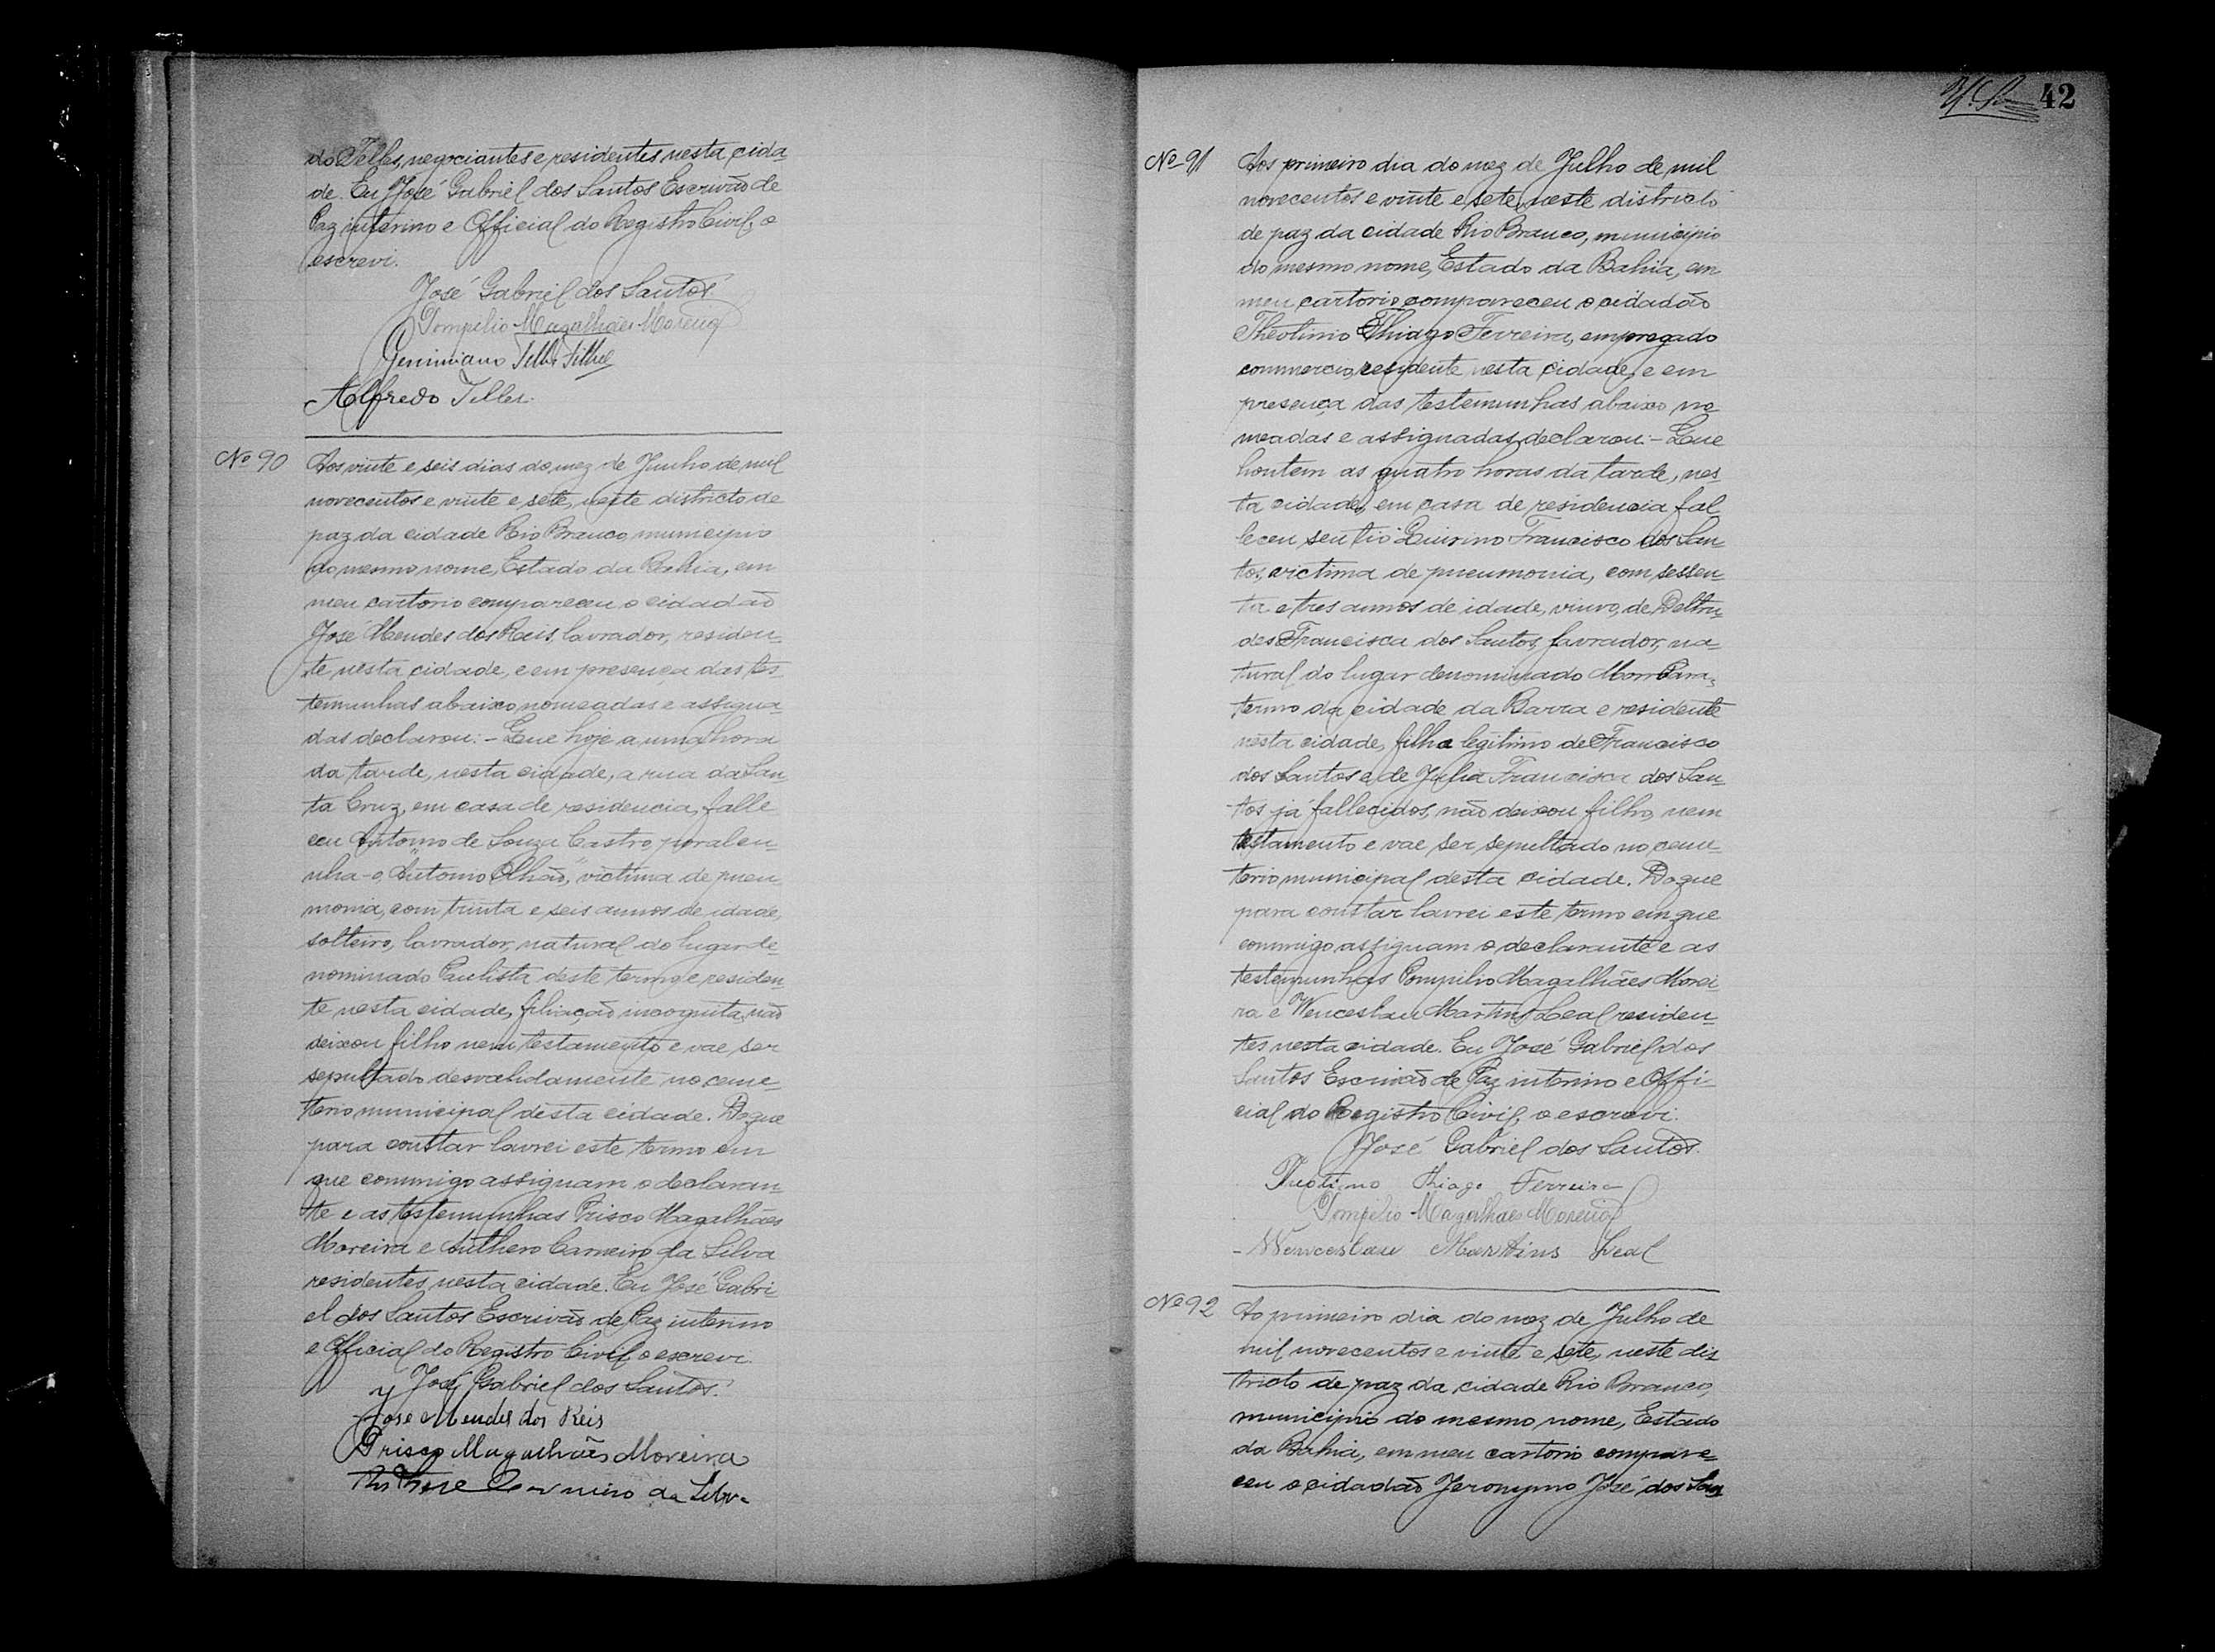 do Telles, negociantes e residentes nesta cida-
de. Eu José Gabriel dos Santos Escrivão de
Paz interino e Official do Registro Civil, o
escrevi.
José Gabriel dos Santos
Pompilio Magalhães Moreira
Geminiano Telles Filho
Alfredo Telles.
Nº 90
Aos vinte e seis dias do mez de Junho de mil
novecentos e vinte e sete, neste districto de
paz da cidade Rio Branco, municipio
do mesmo nome, Estado da Bahia, em
meu cartorio compareceu o cidadão
José Mendes dos Reis, lavrador, residen-
te nesta cidade, e em presença das tes-
temunhas abaixo nomeadas e assigna-
das declarou: - Que hoje a uma hora
da tarde, nesta cidade, a rua da San-
ta Cruz, em casa de residencia, falle-
ceu Antonio de Souza Castro, por alcu-
nha - o "Antonio Olhão", victima de pneu-
monia, com trinta e seis annos de idade,
solteiro, lavrador, natural do lugar de-
nominado Paulista deste termo e residen-
te nesta cidade, filiação incognita, não
deixou filho nem testamento e vae ser
sepultado desvalidamente no ceme-
terio municipal desta cidade. Do que
para constar lavrei este termo em
que commigo assignam o declaran-
te e as testemunhas Prisco Magalhães
Moreira e Anthero Carneiro da Silva
residentes nesta cidade. Eu José Gabri-
el dos Santos Escrivão de Paz interino
e Official do Registro Civil o escrevi.
José Gabriel dos Santos.
José Mendes dos Reis
Prisco Magalhães Moreira
Carneiro da Silva
42
Nº 91
Aos primeiro dia do mez de Julho de mil
novecentos e vinte e sete, neste districto
de paz da cidade Rio Branco, municipio
do mesmo nome, Estado da Bahia, em
meu cartorio compareceu o cidadão
Theotimo Thiago Ferreira, empregado
commercio, residente nesta cidade, e em
presença das testemunhas abaixo no-
meadas e assignadas, declarou: - Que
hontem as quatro horas da tarde, nes-
ta cidade, em casa de residencia fal-
leceu seu tio Quirino Francisco dos San-
tos, victima de pneumonia, com sessen-
ta e tres annos de idade, viuvo, de Deltru-
des Francisca dos Santos, lavrador, na-
tural do lugar denominado Morrpara,
termo da cidade da Barra e residente
nesta cidade, filho legitimo de Francisco
dos Santos e de Julia Francisca dos San-
tos já fallecidos, não deixou filho, nem
testamento e vae ser sepultado no ceme-
terio municipal desta cidade. Do que
para constar lavrei este termo em que
commigo assignam o declarante e as
testemunhas Pompilio Magalhães Morei-
ra e Wenceslau Martins Leal residen-
tes nesta cidade. Eu José Gabriel dos
Santos Escrivão de Paz interino e Offi-
cial do Registro Civil, o escrevi.
José Gabriel dos Santos.
Theotimo Thiago Ferreira
Pompilio Magalhães Moreira
Wenceslau Martins Leal
Nº 92
Ao primeiro dia do mez de Julho de
mil novecentos e vinte e sete, neste dis-
tricto de paz da cidade Rio Branco,
municipio do mesmo nome, Estado
da Bahia, em meu cartorio compare-
ceu o cidadão Jeronymo José dos San